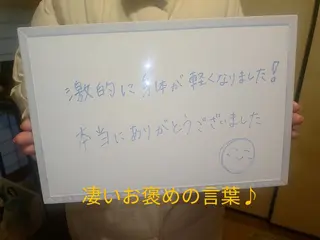 激的に身体が軽くなりました!!
本当にありがとうございました
凄いお褒めの言葉♪